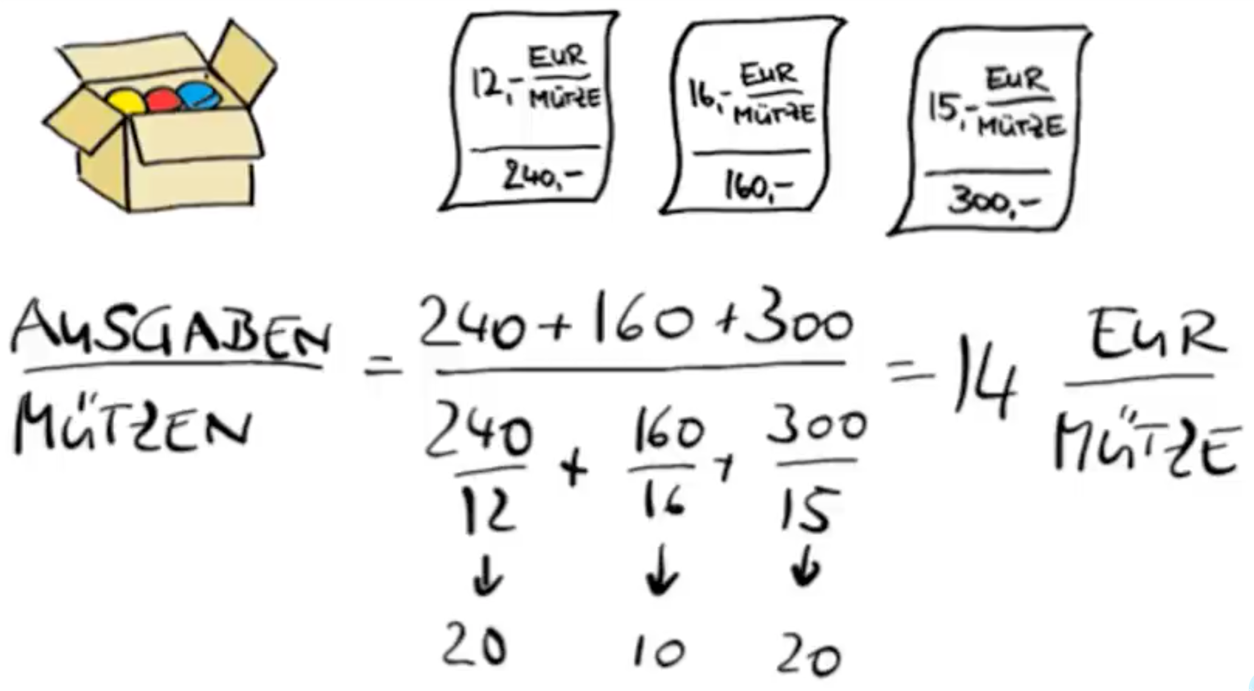 12,- EUR
MÜTZE
240,-
16,- EUR
MÜTZE
160,-
15,- EUR
MÜTZE
300,-
AUSGABEN
MÜTZEN
= 240 + 160 + 300
240 + 160 + 300
12 16 15
↓ ↓ ↓
20 10 20
= 14 EUR
MÜTZE